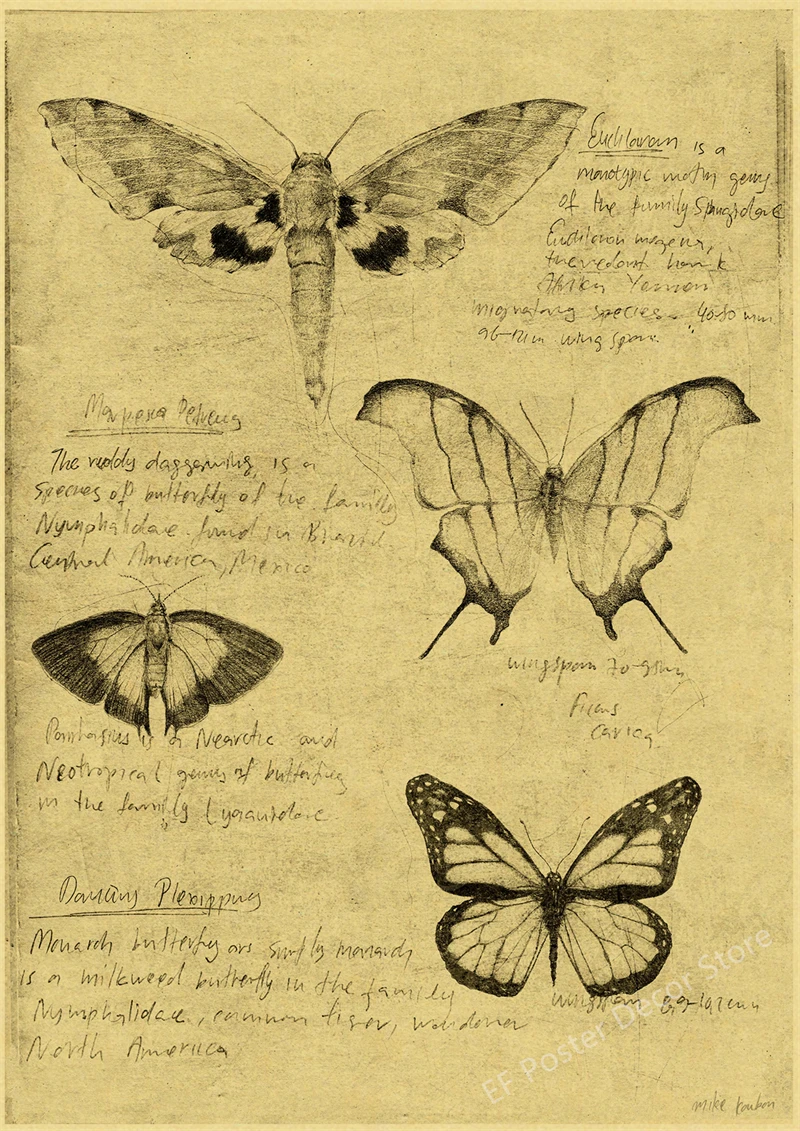 is a
monotypic moth genus
of the family Sphingidae
Yemen
migratory species 40-50 mm
wing span
The ruddy daggerwing, is a
species of butterfly of the family
Nymphalidae. found in Brazil.
Central America, Mexico
wingspan 70-95mm
Ficus
carica
is a Nearctic and
Neotropical genus of butterflies
in the family Lycaenidae
Danaus Plexippus
Monarch butterfly or simply monarch
is a milkweed butterfly in the family
Nymphalidae, common tiger, wanderer
North America
wingspan
EF Poster Decor Store
mike